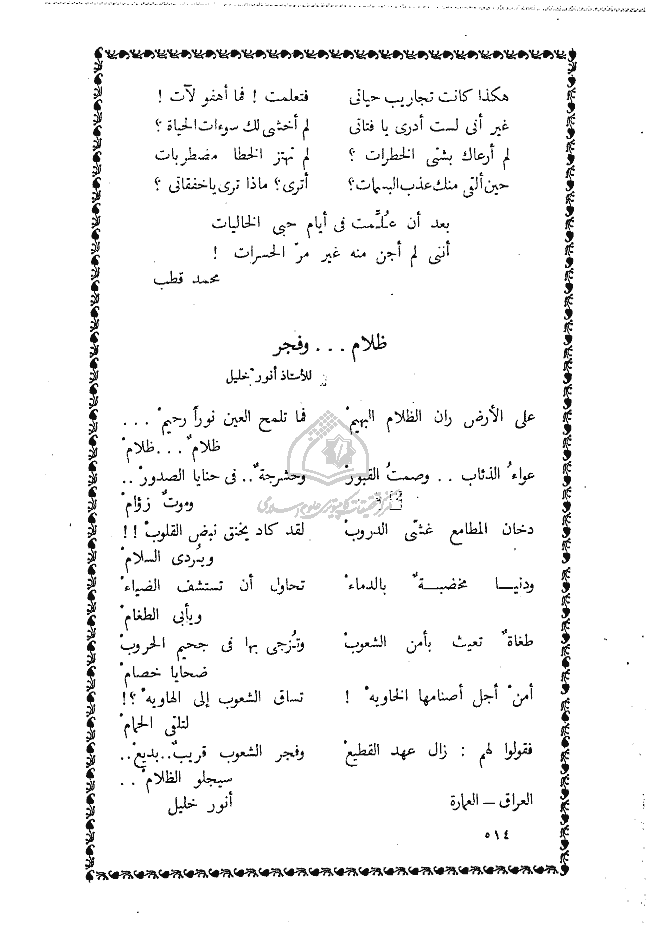 هكذا كانت تجاريب حياتى فتعلمت ! فما أهفو لآت !
غير أنى لست أدرى يا فتاتى لم أخشى لك سوءات الحياة ؟
لم أرعاك بشتى الخطرات ؟ لم تهتز الخطا مضطربات
حين ألقى منك عذب البسمات؟ أترى؟ ماذا ترى يا خفقاتى ؟
بعد أن عُلِّمت فى أيام حبى الخاليات
أننى لم أجن منه غير مرّ الحسرات !
محمد قطب
ظلام ... وفجر
للأستاذ أنور خليل
على الأرض ران الظلام البهيمْ فما تلمح العين نوراً رحيمْ ...
ظلامٌ ...ظلامْ
عواءُ الذئاب .. وصمتُ القبورْ وحشرجةٌ .. فى حنايا الصدورْ ..
وموتٌ زؤامْ
دخان المطامع غشّى الدروبْ لقد كاد يخنق نبض القلوبْ !!
ويُردى السلامْ
ودنيـا مخضبـةٌ بالدماءْ تحاول أن تستشف الضياءْ
ويأبى الطغامْ
طغاةٌ تعيث بأمن الشعوبْ وتُزجى بها فى جحيم الحروبْ
ضحايا خصامْ
أمنْ أجل أصنامها الخاويهْ ! تساق الشعوب إلى الهاويهْ ؟!
لتلقى الحمامْ
فقولوا لهم : زال عهد القطيعْ وفجر الشعوب قريبٌ..بديعْ..
سيجلو الظلامْ ..
العراق – العمارة أنور خليل
٥١٤